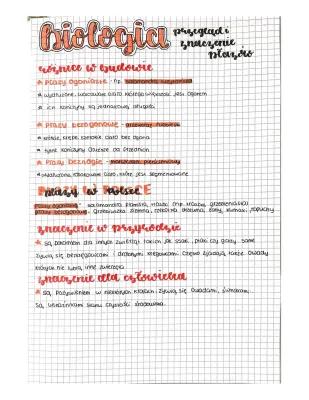 biologia
przegląd i
znaczenie
płazów
różnice w budowie
* Płazy ogoniaste - np. salamandra
* wydłużone, walcowate ciało którego większość jest ogonem
* ich kończyny są jednakowej długości
* Płazy bezogonowe -
* krótkie, krępe, szerokie ciało bez ogona
* tylne kończyny dłuższe od przednich
* Płazy beznogie -
wydłużone, robakowate ciało, które jest segmentowane
płazy w Polsce
Płazy ogoniaste - salamandra plamista, traszki (np. górska, grzebieniasta)
płazy bezogonowe - grzebiuszka ziemna, rzekotka drzewna, żaby, kumaki, ropuchy
znaczenie w przyrodzie
* są pokarmem dla innych zwierząt takich jak ssaki, ptaki czy gady. Same
żywią się bezkręgowcami i drobnymi kręgowcami. Często zjadają także owady
których nie lubią inne zwierzęta
znaczenie dla człowieka
* są pożywieniem w niektórych krajach. Żywią się owadami, ślimakami.
Są wskaźnikami stanu czystości środowiska.